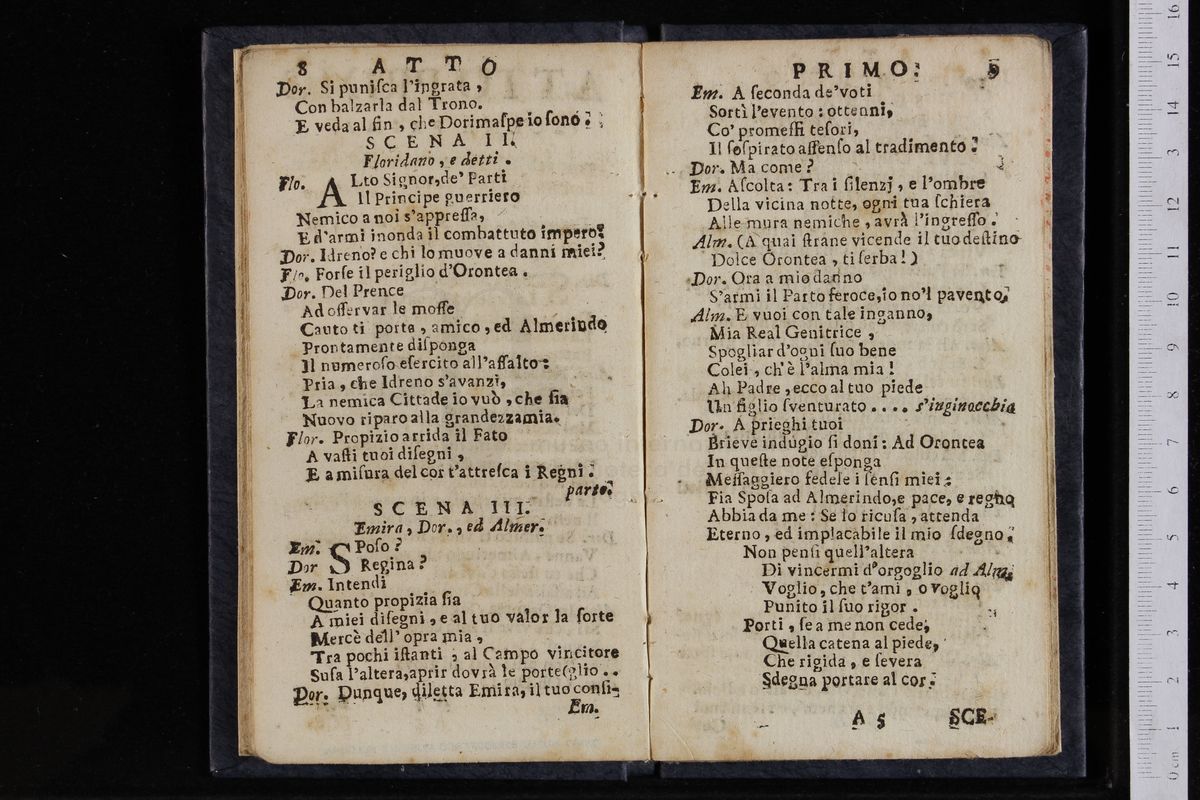 8 ATTO
Dor. Si puniſca l'ingrata ,
Con balzarla dal Trono.
E veda al fin , che Dorimaſpe io ſono .
SCENA II.
Floridano , e detti .
Flo. ALto Signor, de' Parti
Il Principe guerriero
Nemico a noi s'appreſſa,
E d'armi inonda il combattuto impero.
Dor. Idreno? e chi lo muove a danni miei?
Flo. Forſe il periglio d'Orontea .
Dor. Del Prence
Ad oſſervar le moſſe
Cauto ti porta , amico , ed Almerindo
Prontamente diſponga
Il numeroſo eſercito all'aſſalto :
Pria , che Idreno s'avanzi,
La nemica Cittade io vuò , che ſia
Nuovo riparo alla grandezza mia.
Flor. Propizio arrida il Fato
A vaſti tuoi diſegni ,
E a miſura del cor t'attreſca i Regni .
parte.
SCENA III.
Emira , Dor. , ed Almer.
Em. SPoſo ?
Dor Regina ?
Em. Intendi
Quanto propizia ſia
A miei diſegni , e al tuo valor la ſorte
Mercè dell' opra mia ,
Tra pochi iſtanti , al Campo vincitore
Suſa l'altera, aprir dovrà le porte (glio . .
Dor. Dunque, diletta Emira, il tuo conſi-
Em.
PRIMO. 9
Em. A ſeconda de' voti
Sortì l'evento : ottenni,
Co' promeſſi teſori,
Il ſoſpirato aſſenſo al tradimento .
Dor. Ma come ?
Em. Aſcolta : Tra i ſilenzj , e l'ombre
Della vicina notte, ogni tua ſchiera
Alle mura nemiche , avrà l'ingreſſo .
Alm. (A quai ſtrane vicende il tuo deſtino
Dolce Orontea , ti ſerba ! )
Dor. Ora a mio danno
S'armi il Parto feroce, io no'l pavento.
Alm. E vuoi con tale inganno,
Mia Real Genitrice ,
Spogliar d'ogni ſuo bene
Colei , ch' è l'alma mia !
Ah Padre , ecco al tuo piede
Un figlio ſventurato . . . . s'inginocchia
Dor. A prieghi tuoi
Brieve indugio ſi doni : Ad Orontea
In queſte note eſponga
Meſſaggiero fedele i ſenſi miei :
Fia Spoſa ad Almerindo, e pace, e regno
Abbia da me : Se lo ricuſa , attenda
Eterno , ed implacabile il mio ſdegno .
Non penſi quell'altera
Di vincermi d'orgoglio ad Alm.
Voglio , che t'ami , o voglio
Punito il ſuo rigor .
Porti , ſe a me non cede,
Quella catena al piede,
Che rigida , e ſevera
Sdegna portare al cor .
A 5 SCE-
0 cm 1 2 3 4 5 6 7 8 9 10 11 12 13 14 15 16